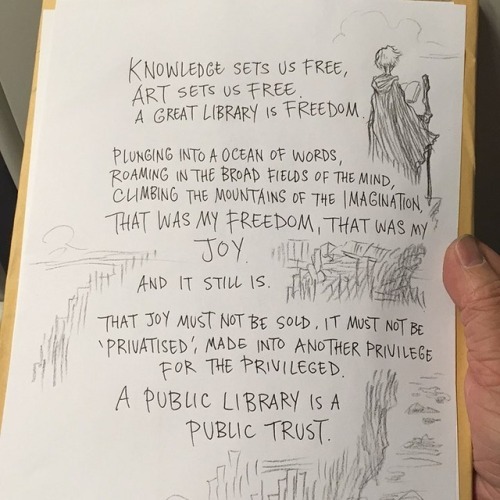 KNOWLEDGE SETS US FREE,
ART SETS US FREE.
A GREAT LIBRARY IS FREEDOM.
PLUNGING INTO A OCEAN OF WORDS,
ROAMING IN THE BROAD FIELDS OF THE MIND,
CLIMBING THE MOUNTAINS OF THE IMAGINATION,
THAT WAS MY FREEDOM, THAT WAS MY
JOY.
AND IT STILL IS.
THAT JOY MUST NOT BE SOLD. IT MUST NOT BE
'PRIVATISED', MADE INTO ANOTHER PRIVILEGE
FOR THE PRIVILEGED.
A PUBLIC LIBRARY IS A
PUBLIC TRUST.